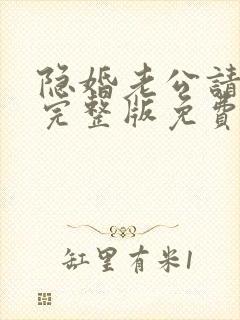 隐婚老公請
完整版免費
缸里有米1